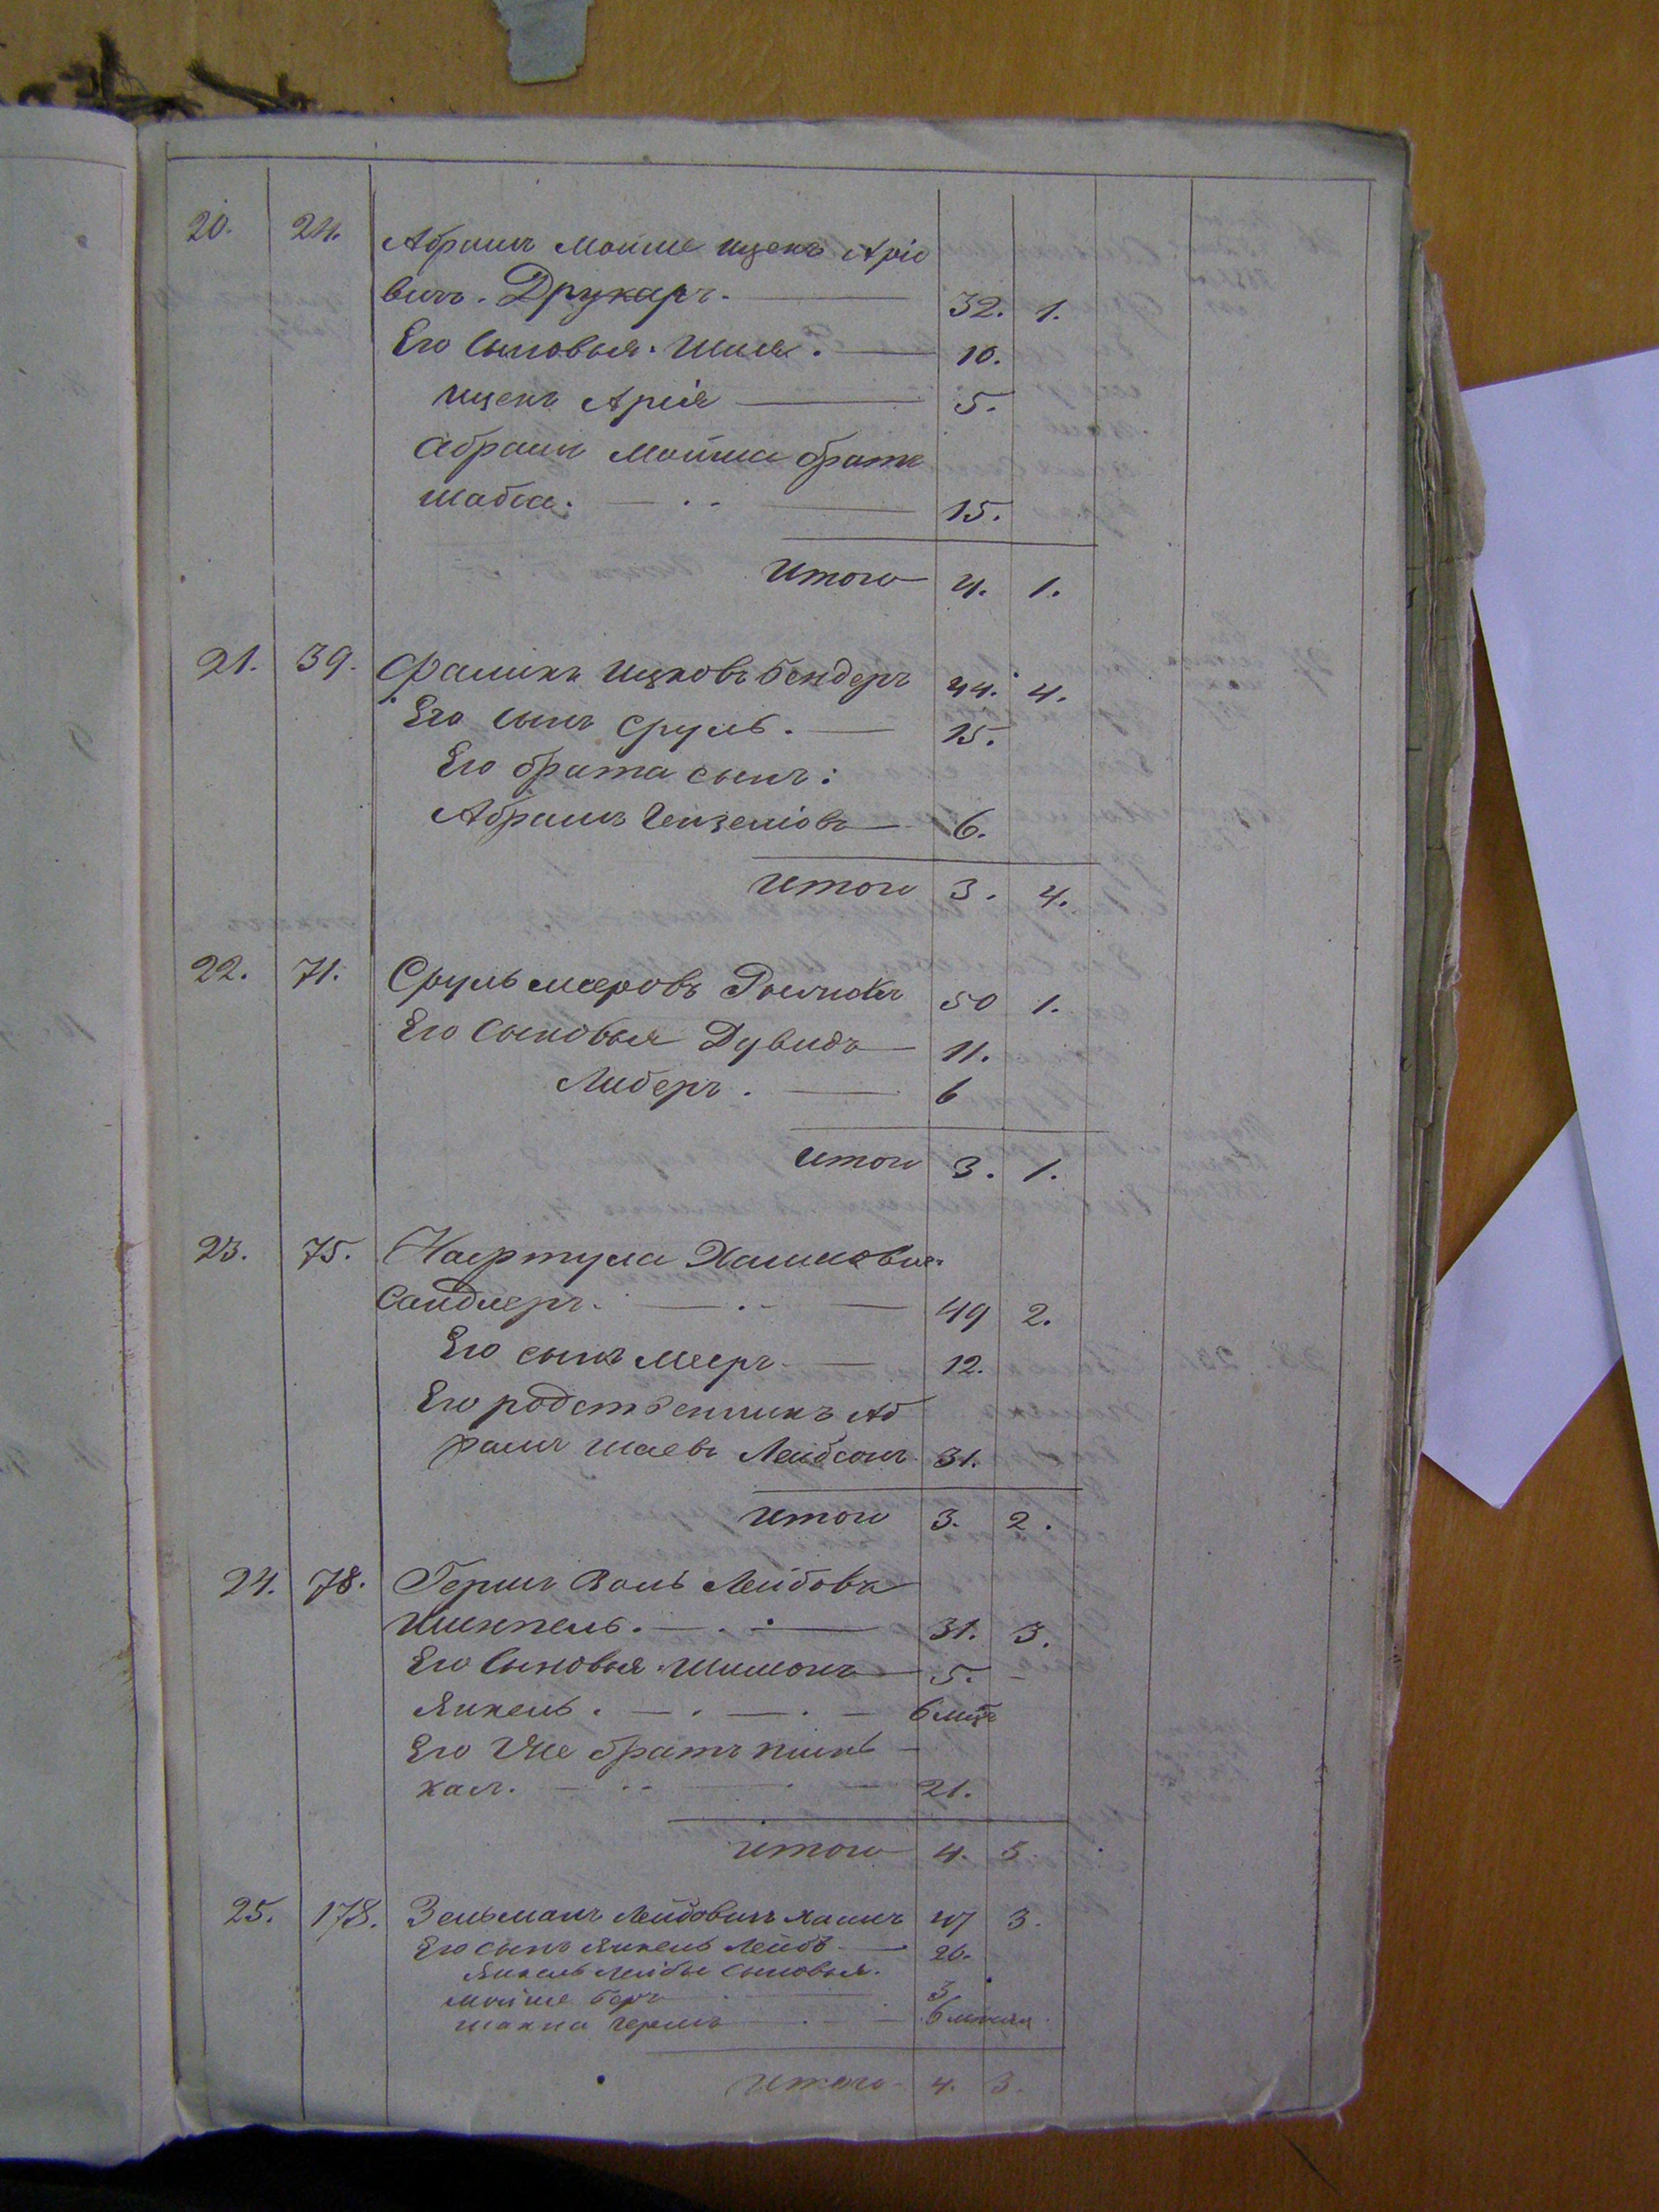 20. 24. Абрамъ Мойше Ицекъ Аріо
вичъ. Друкаръ. — 32. 1.
Его Сыновья. Шая. — 10.
Ицекъ Арія — 5.
Абрамъ Мойша братъ
Шабса. — 15.
Итого 4. 1.
21. 39. Фаликъ Ицковъ Бендеръ 44. 4.
Его сынъ Сруль. — 15.
Его брата сынъ:
Абрамъ — 6.
Итого 3. 4.
22. 71. Сруль Мееровъ 50 1.
Его Сыновья Дувидъ — 11.
Либеръ. — 6
Итого 3. 1.
23. 75. Нафтула Хаимовъ
Сандлеръ. — 49 2.
Его сынъ Мееръ — 12.
Его родственникъ Аб
рамъ Шаевъ Лейбсонъ 31.
Итого 3. 2.
24. 78. Гершъ Волъ Лейбовъ
— 31. 3.
Его Сыновья Шимонъ — 5. —
Янкель. — 6 мцъ
Его же братъ Пинь —
касъ. — 21.
Итого 4. 3.
25. 178. Зельманъ Лейбовичъ 47 3.
Его сынъ Янкель Лейбъ — 20.
Янкель Лейбы сыновья.
Мойше Беръ — 3
Шахна Гершъ — 6 мцъ
Итого — 4. 3.